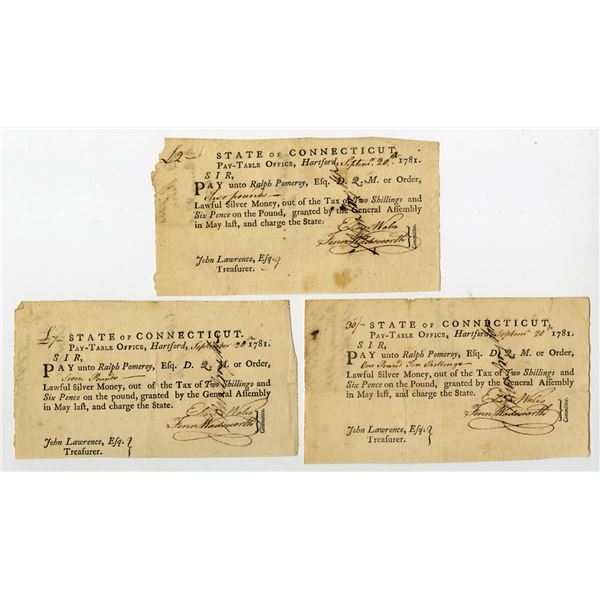 £2-
STATE OF CONNECTICUT,
PAY-TABLE OFFICE, Hartford, Septemr. 20th. 1781.
SIR,
PAY unto Ralph Pomeroy, Esq. D. Q. M. or Order,
Two pounds
Lawful Silver Money, out of the Tax of Two Shillings and
Six Pence on the Pound, granted by the General Assembly
in May last, and charge the State.
Eleazr Wales
Fenn Wadsworth
Committee.
John Lawrence, Esq.
Treasurer.
£7-
STATE OF CONNECTICUT.
PAY-TABLE OFFICE, Hartford, September 20th 1781.
SIR,
PAY unto Ralph Pomeroy, Esq. D. Q. M. or Order,
Seven Pounds
Lawful Silver Money, out of the Tax of Two Shillings and
Six Pence on the pound, granted by the General Assembly
in May last, and charge the State.
Eleazr Wales
Fenn Wadsworth
Committee.
John Lawrence, Esq.
Treasurer.
30/-
STATE OF CONNECTICUT,
PAY-TABLE OFFICE, Hartford, Septemr 20th 1781.
SIR,
PAY unto Ralph Pomeroy, Esq. D. Q. M. or Order,
One Pound Ten Shillings
Lawful Silver Money, out of the Tax of Two Shillings and
Six Pence on the Pound, granted by the General Assembly
in May last, and charge the State.
Eleazr Wales
Fenn Wadsworth
Committee.
John Lawrence, Esq.
Treasurer.